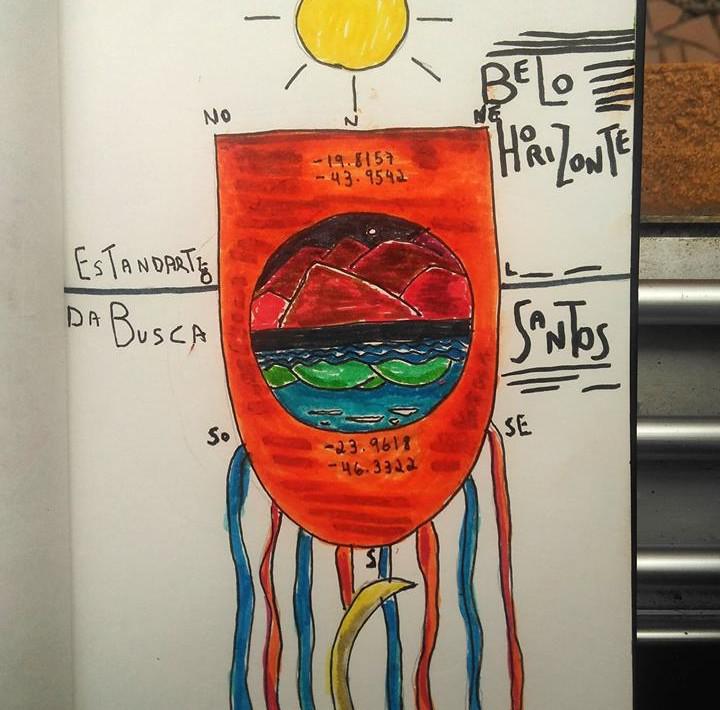 BELO
HORIZONTE
NO
N
NE
-19.8157
-43.9542
ESTANDARTE
DA BUSCA
L
SANTOS
SO
SE
-23.9618
-46.3322
S